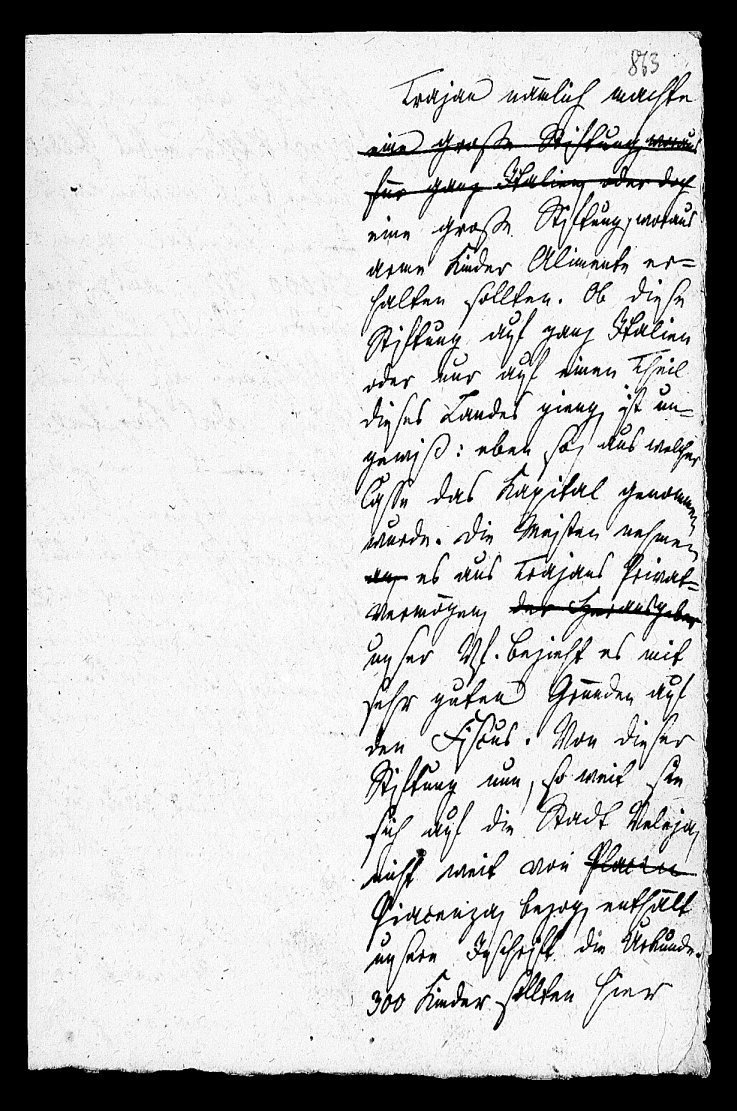 863
Trajan nämlich machte
eine große Stiftung, woraus
für ganz Italien, oder doch
eine große Stiftung, woraus
arme Kinder Alimente er=
halten sollten. Ob diese
Stiftung auf ganz Italien
oder nur auf einen Theil
dieses Landes gieng, ist un=
gewiß: eben so, aus welcher
Casse das Kapital genommen
wurde. Die Meisten nehmen
an, es aus Trajans Privat=
vermögen, der Herausgeber
unser Vf. bezieht es mit
sehr guten Gründen auf
den Fiscus. Von dieser
Stiftung nun, so weit sie
sich auf die Stadt Veleja,
nicht weit von Placen
Piacenza, bezog, enthält
unsere Inschrift die Urkunde.
300 Kinder sollten hier